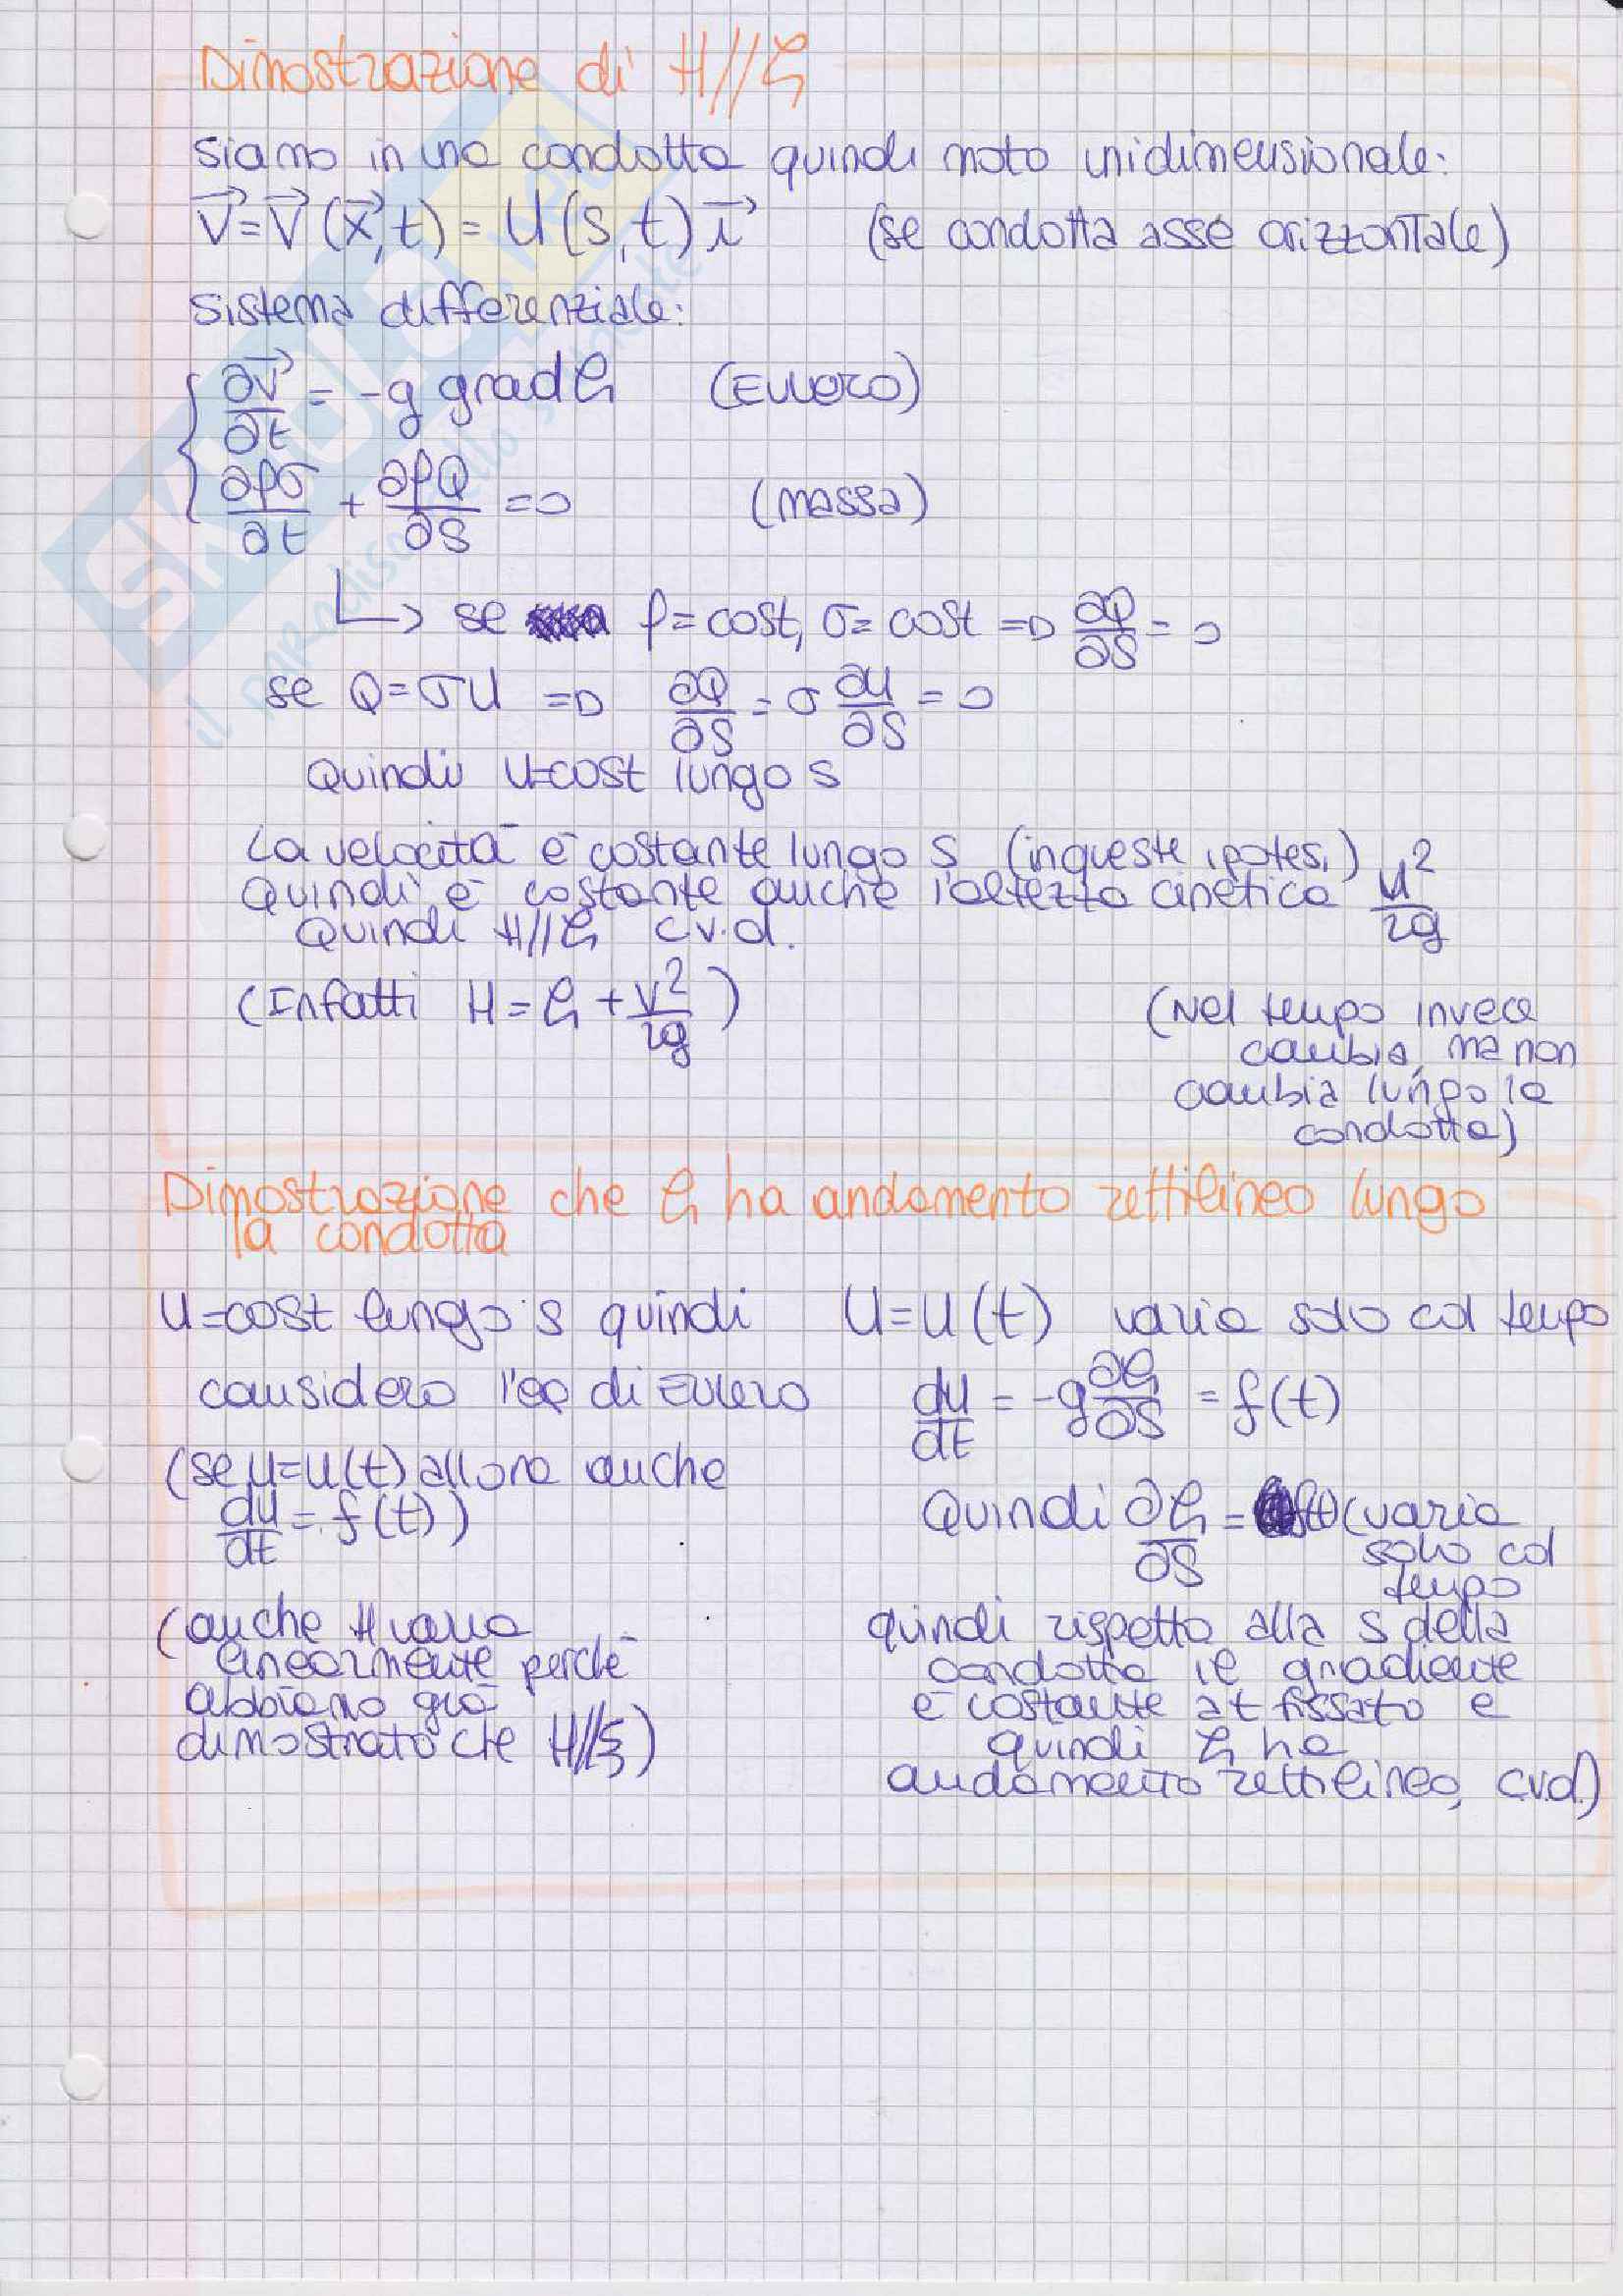 Dimostrazione di H//h
siamo in una condotta quindi moto unidimensionale:
v⃗=v⃗(x⃗,t) = U(s,t) i⃗ (se condotta asse orizzontale)
Sistema differenziale:
∂v⃗/∂t = -g grad h (Eulero)
∂ρσ/∂t + ∂ρQ/∂s = 0 (massa)
↳ se ρ=cost, σ=cost => ∂Q/∂s = 0
se Q=σU => ∂Q/∂s = σ ∂U/∂s = 0
Quindi U=cost lungo s
La velocità è costante lungo s (in queste ipotesi)
Quindi è costante anche l'altezza cinetica U²/2g
Quindi H//h c.v.d.
(Infatti H = h + v²/2g)
(Nel tempo invece
cambia, ma non
cambia lungo la
condotta)
Dimostrazione che h ha andamento rettilineo lungo
la condotta
U=cost lungo s quindi U=U(t) varia solo col tempo
considero l'eq di Eulero dU/dt = -g ∂h/∂s = f(t)
(se U=U(t) allora anche
dU/dt = f(t))
Quindi ∂h/∂s = f(t) (varia
solo col
tempo
(anche H varia
linearmente perchè
abbiamo già
dimostrato che H//h)
quindi rispetto alla s della
condotta il gradiente
è costante a t fissato e
quindi h ha
andamento rettilineo, c.v.d.)
SKUOLA.net
il paradiso dello studente